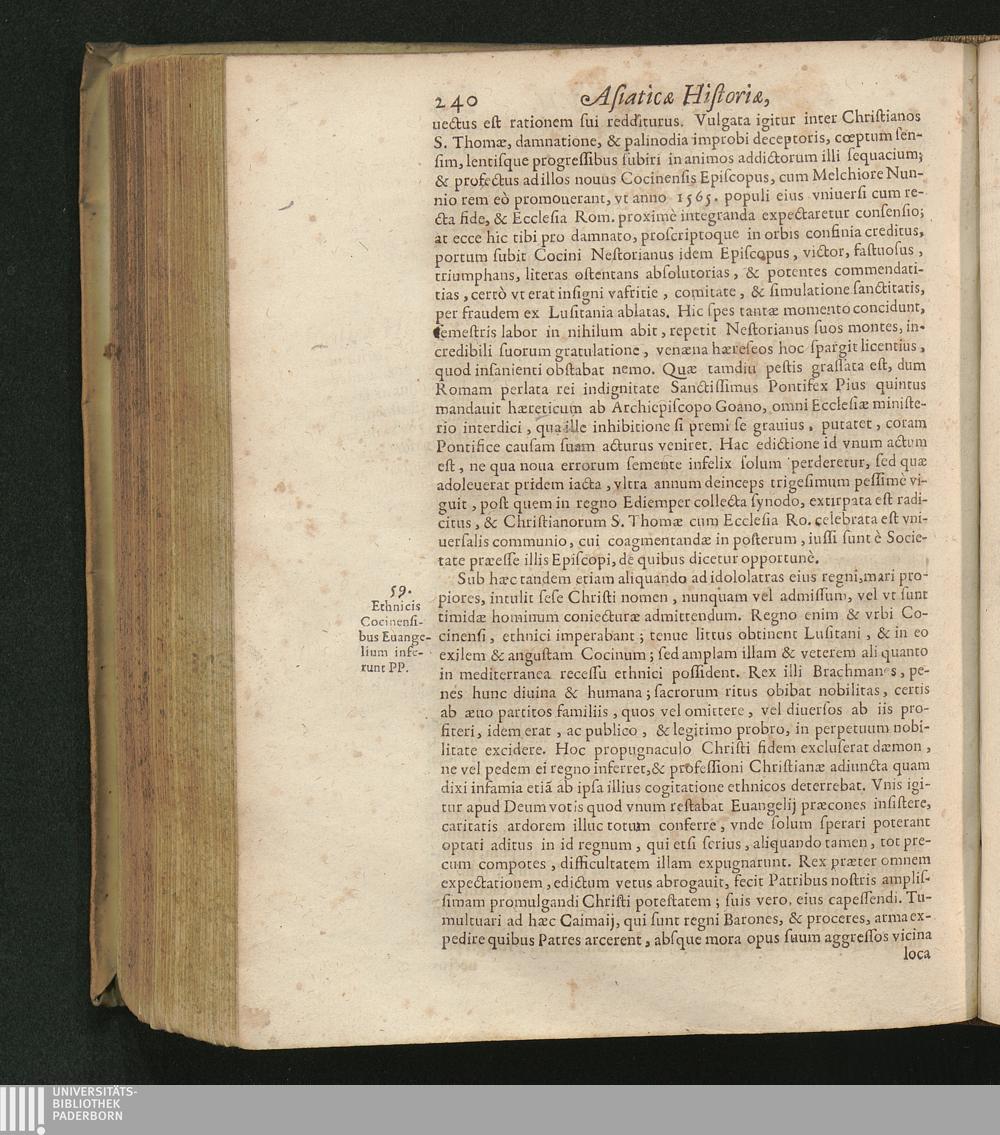 240 Asiaticæ Historiæ,
uectus est rationem sui redditurus. Vulgata igitur inter Christianos
S. Thomæ, damnatione, & palinodia improbi deceptoris, cœptum sen-
sim, lentisque progressibus subiri in animos addictorum illi sequacium;
& profectus ad illos nouus Cocinensis Episcopus, cum Melchiore Nun-
nio rem eò promouerant, vt anno 1565. populi eius vniuersi cum re-
cta fide, & Ecclesia Rom. proximè integranda expectaretur consensio;
at ecce hic tibi pro damnato, proscriptoque in orbis confinia creditus,
portum subit Cocini Nestorianus idem Episcopus, victor, fastuosus,
triumphans, literas ostentans absolutorias, & potentes commendati-
tias, certò vt erat insigni vafritie, comitate, & simulatione sanctitatis,
per fraudem ex Lusitania ablatas. Hic spes tantæ momento concidunt,
semestris labor in nihilum abit, repetit Nestorianus suos montes, in-
credibili suorum gratulatione, venæna hæreseos hoc spargit licentius,
quod insanienti obstabat nemo. Quæ tamdiu pestis grassata est, dum
Romam perlata rei indignitate Sanctissimus Pontifex Pius quintus
mandauit hæreticum ab Archiepiscopo Goano, omni Ecclesiæ ministe-
rio interdici, qua ille inhibitione si premi se grauius, putatet, coram
Pontifice causam suam acturus veniret. Hac edictione id vnum actum
est, ne qua noua errorum semente infelix solum perderetur, sed quæ
adoleuerat pridem iacta, vltra annum deinceps trigesimum pessimè vi-
guit, post quem in regno Ediemper collecta synodo, extirpata est radi-
citus, & Christianorum S. Thomæ cum Ecclesia Ro. celebrata est vni-
uersalis communio, cui coagmentandæ in posterum, iussi sunt è Socie-
tate præesse illis Episcopi, de quibus dicetur opportunè.
Sub hæc tandem etiam aliquando ad idololatras eius regni, mari pro-
piores, intulit sese Christi nomen, nunquam vel admissum, vel vt sunt
timidæ hominum coniecturæ admittendum. Regno enim & vrbi Co-
cinensi, ethnici imperabant; tenue littus obtinent Lusitani, & in eo
exilem & angustam Cocinum; sed amplam illam & veterem aliquanto
in mediterranea recessu ethnici possident. Rex illi Brachmanes, pe-
nes hunc diuina & humana; sacrorum ritus obibat nobilitas, certis
ab æuo partitos familiis, quos vel omittere, vel diuersos ab iis pro-
fiteri, idem erat, ac publico, & legitimo probro, in perpetuum nobi-
litate excidere. Hoc propugnaculo Christi fidem excluserat dæmon,
ne vel pedem ei regno inferret, & professioni Christianæ adiuncta quam
dixi infamia etiã ab ipsa illius cogitatione ethnicos deterrebat. Vnis igi-
tur apud Deum votis quod vnum restabat Euangelij præcones insistere,
caritatis ardorem illuc totum conferre, vnde solum sperari poterant
optati aditus in id regnum, qui etsi serius, aliquando tamen, tot pre-
cum compotes, difficultatem illam expugnarunt. Rex præter omnem
expectationem, edictum vetus abrogauit, fecit Patribus nostris amplis-
simam promulgandi Christi potestatem; suis vero, eius capessendi. Tu-
multuari ad hæc Caimaij, qui sunt regni Barones, & proceres, arma ex-
pedire quibus Patres arcerent, absque mora opus suum aggressos vicina
loca
59.
Ethnicis
Cocinensi-
bus Euange-
lium infe-
runt PP.
UNIVERSITÄTS-
BIBLIOTHEK
PADERBORN